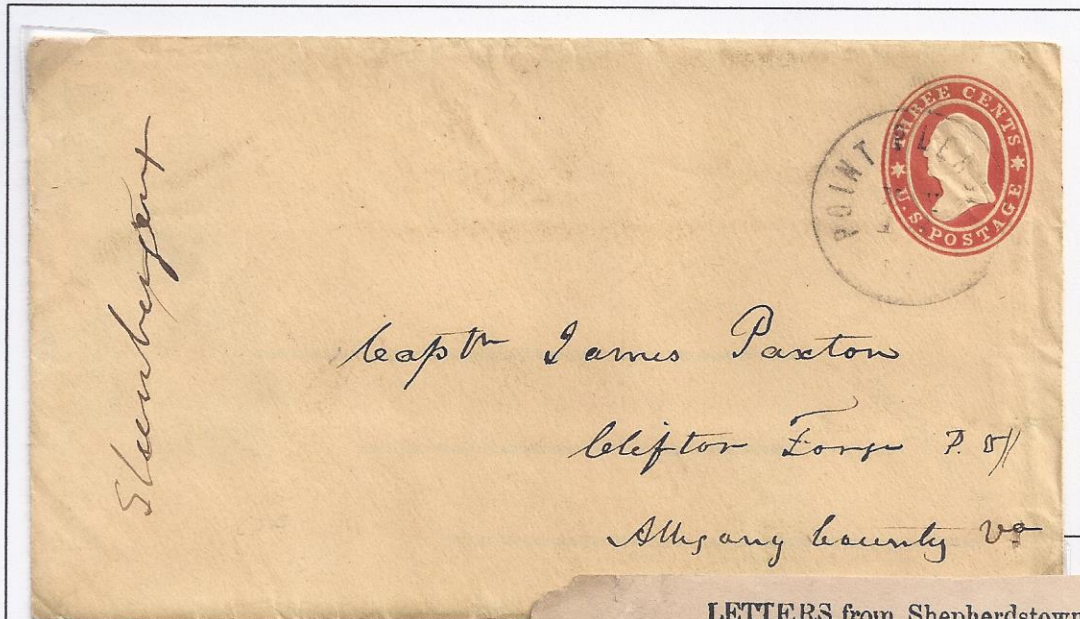 THREE CENTS
U.S. POSTAGE
POINT PLEAS
Captn James Paxton
Clifton Forge P. Off
Allegany County Va
LETTERS from Shepherdstown